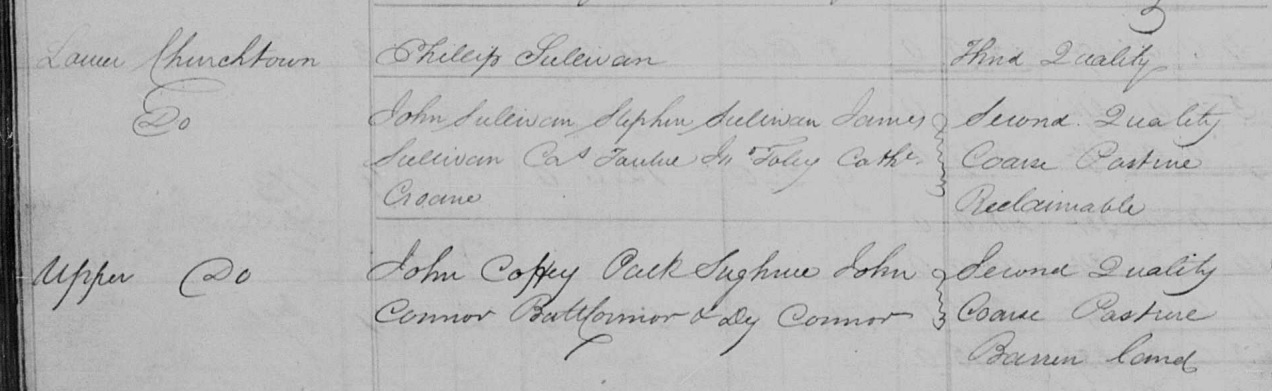 5
Lower Churchtown Phillip Sullivan Third Quality
Do John Sullivan Stephen Sullivan James Second Quality
Sullivan Cas Jno Foley Cathe Coarse Pasture
Croane Reclaimable
Upper Do John Coffey Patk Sughrue John Second Quality
Connor Batt Connor & Dy Connor Coarse Pasture
Barren land